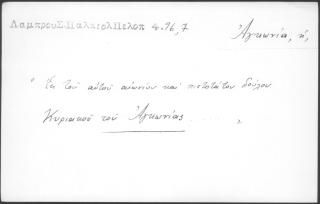 ΛαμπρουΣ.ΠαλαιολΠελοπ 4.96,7
Ἀγκωνία, ἡ,
" Ἐκ τοῦ αὐτοῦ αἰωνίου καὶ πιστοτάτου δούλου
Κυριακοῦ τοῦ Ἀγκωνίας ..... "